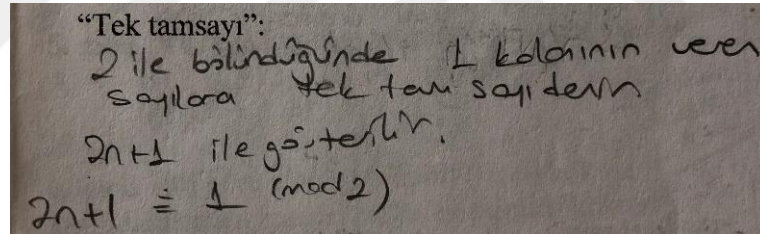 “Tek tamsayı”:
2 ile bölündüğünde 1 kalanının veren
sayılara tek tam sayı denir
2n+1 ile gösterilir.
2n+1 ≡ 1 (mod 2)